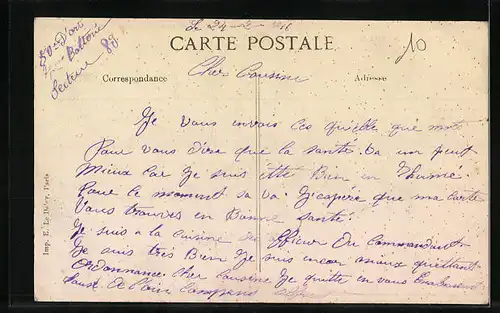 Le 24-2-16
CARTE POSTALE
10
Secteur 89
Correspondance
Cher Cousine
Adresse
Je Vous envois ces quelle que mots
Pour vous dire que la sante. Va un peut
Mieux Car Je suis été Bien en Rhume
Pour le moment sa va. J'espére que ma carte
Vous trouves en Bonne santé
Je suis a la cuisine des officier Du Commandant
Je suis très Bien Je suis encor mieux qu'ettant
Ordonnance. Cher Cousine Je quitte en vous Embrassant
Imp. E. Le Deley, Paris